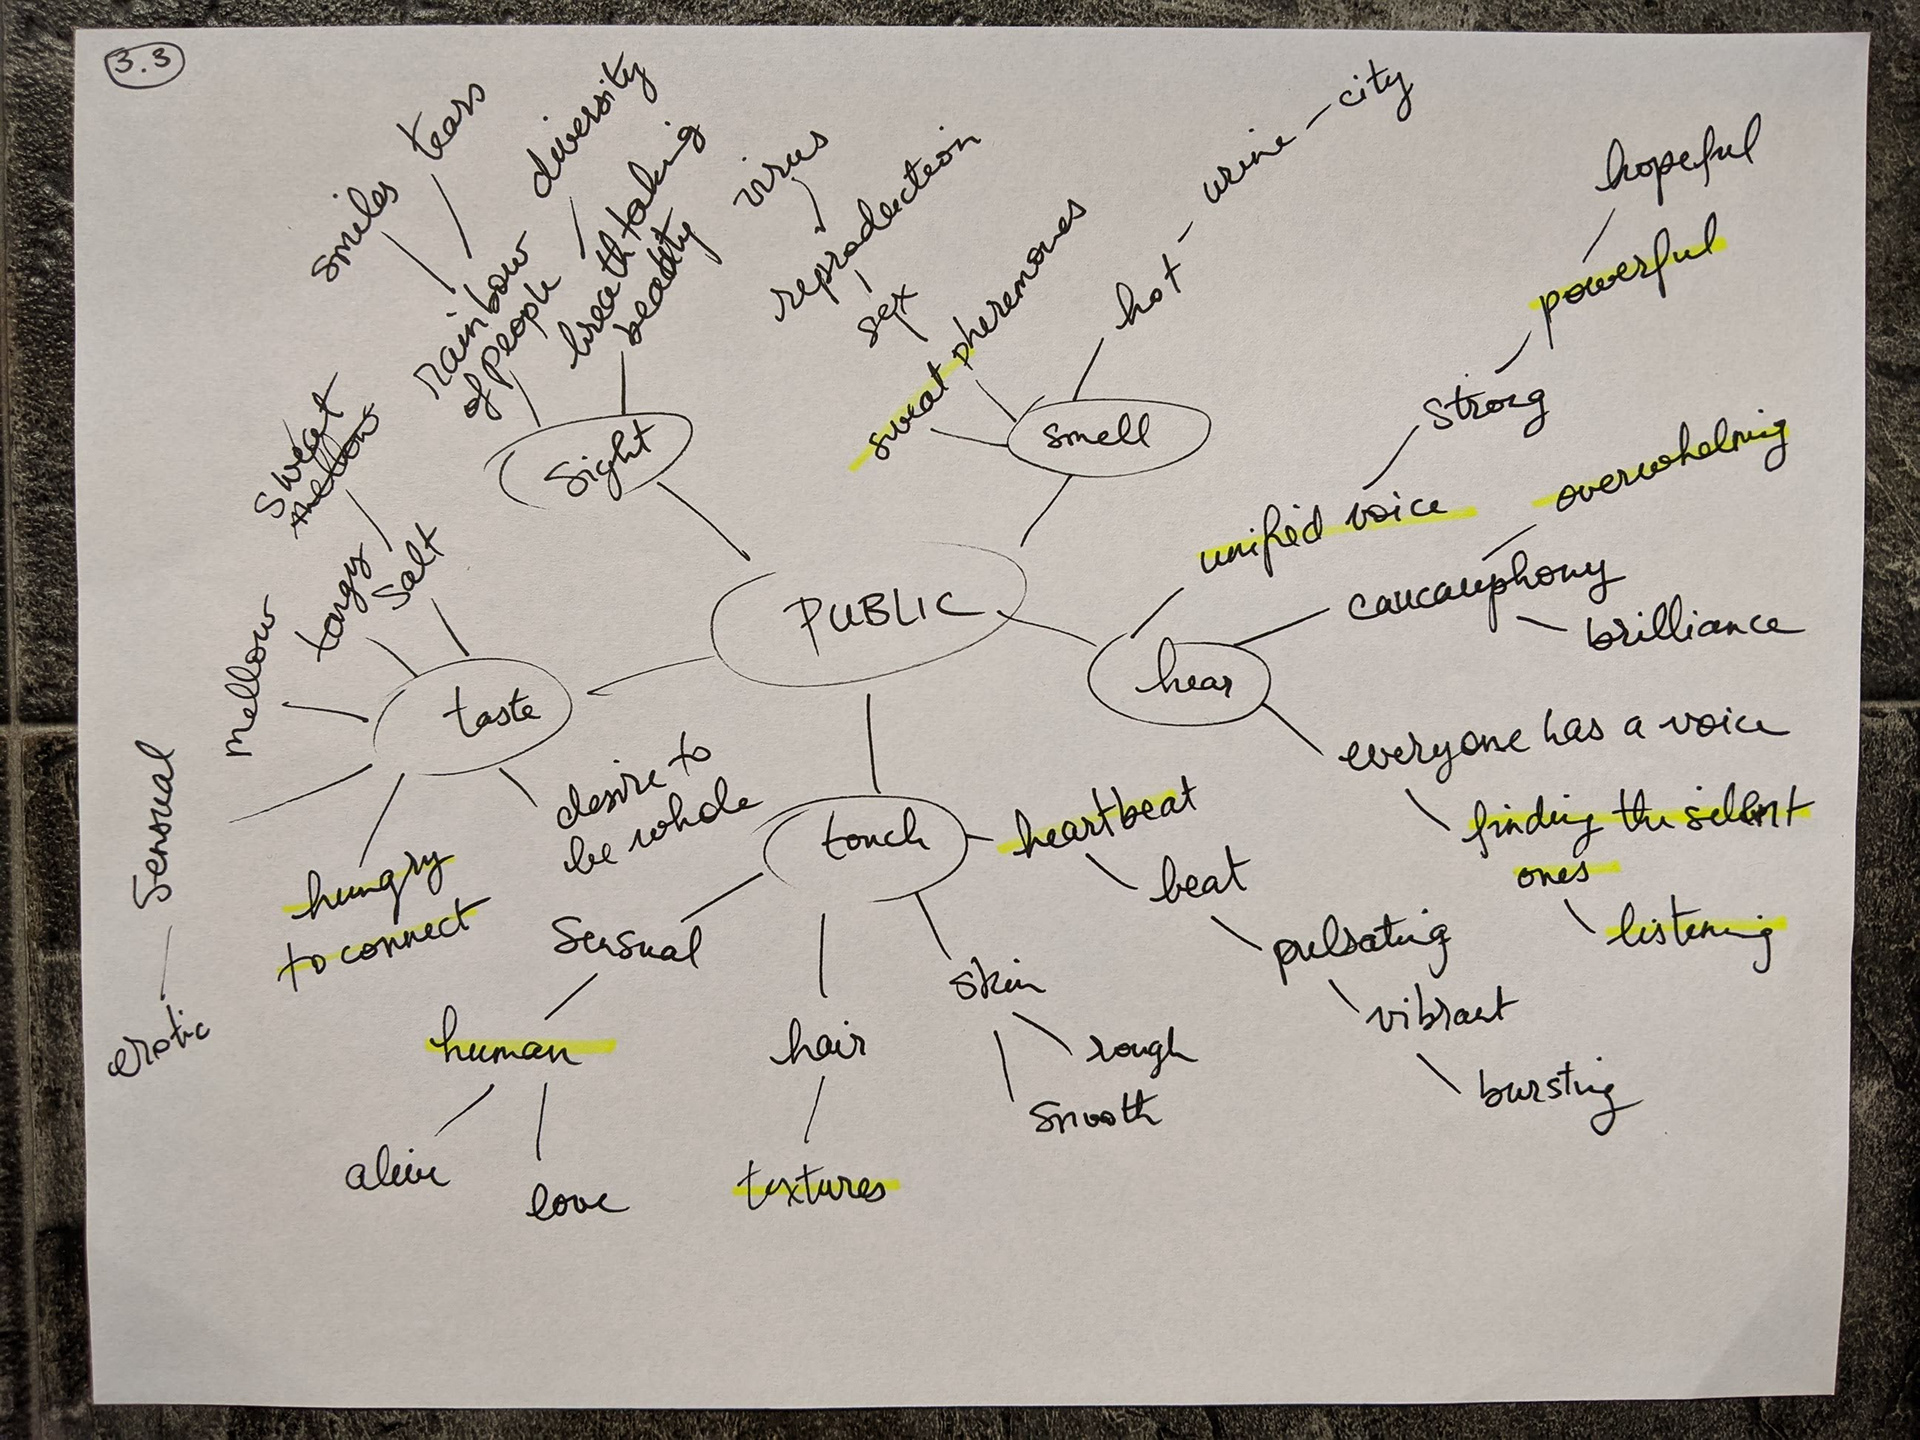 3.3
smiles
tears
rainbow
of people
diversity
breath taking
beauty
sight
virus
reproduction
sex
sweat
pheremones
hot - urine - city
smell
PUBLIC
hear
unified voice
strong
powerful
hopeful
caucauphony
overwhelming
brilliance
everyone has a voice
finding the silent
ones
listening
touch
heartbeat
beat
pulsating
vibrant
bursting
skin
rough
smooth
hair
textures
sensual
human
alive
love
taste
salt
tangy
sweat
mellow
mellow
sensual
erotic
hungry
to connect
desire to
be whole